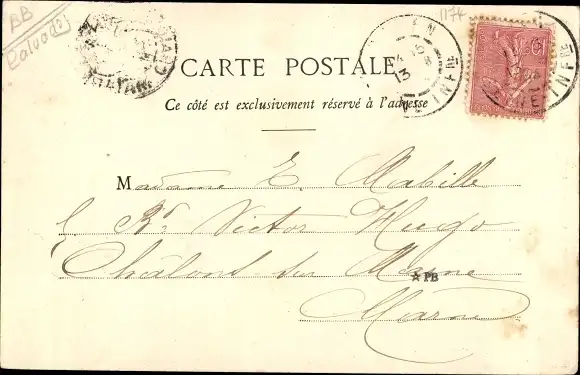 BB
Calvados
1174
CARTE POSTALE
Ce côté est exclusivement réservé à l'adresse
Madame E. Mabille
Bd Victor Hugo
Châlons sur Marne
☆PB
Marne